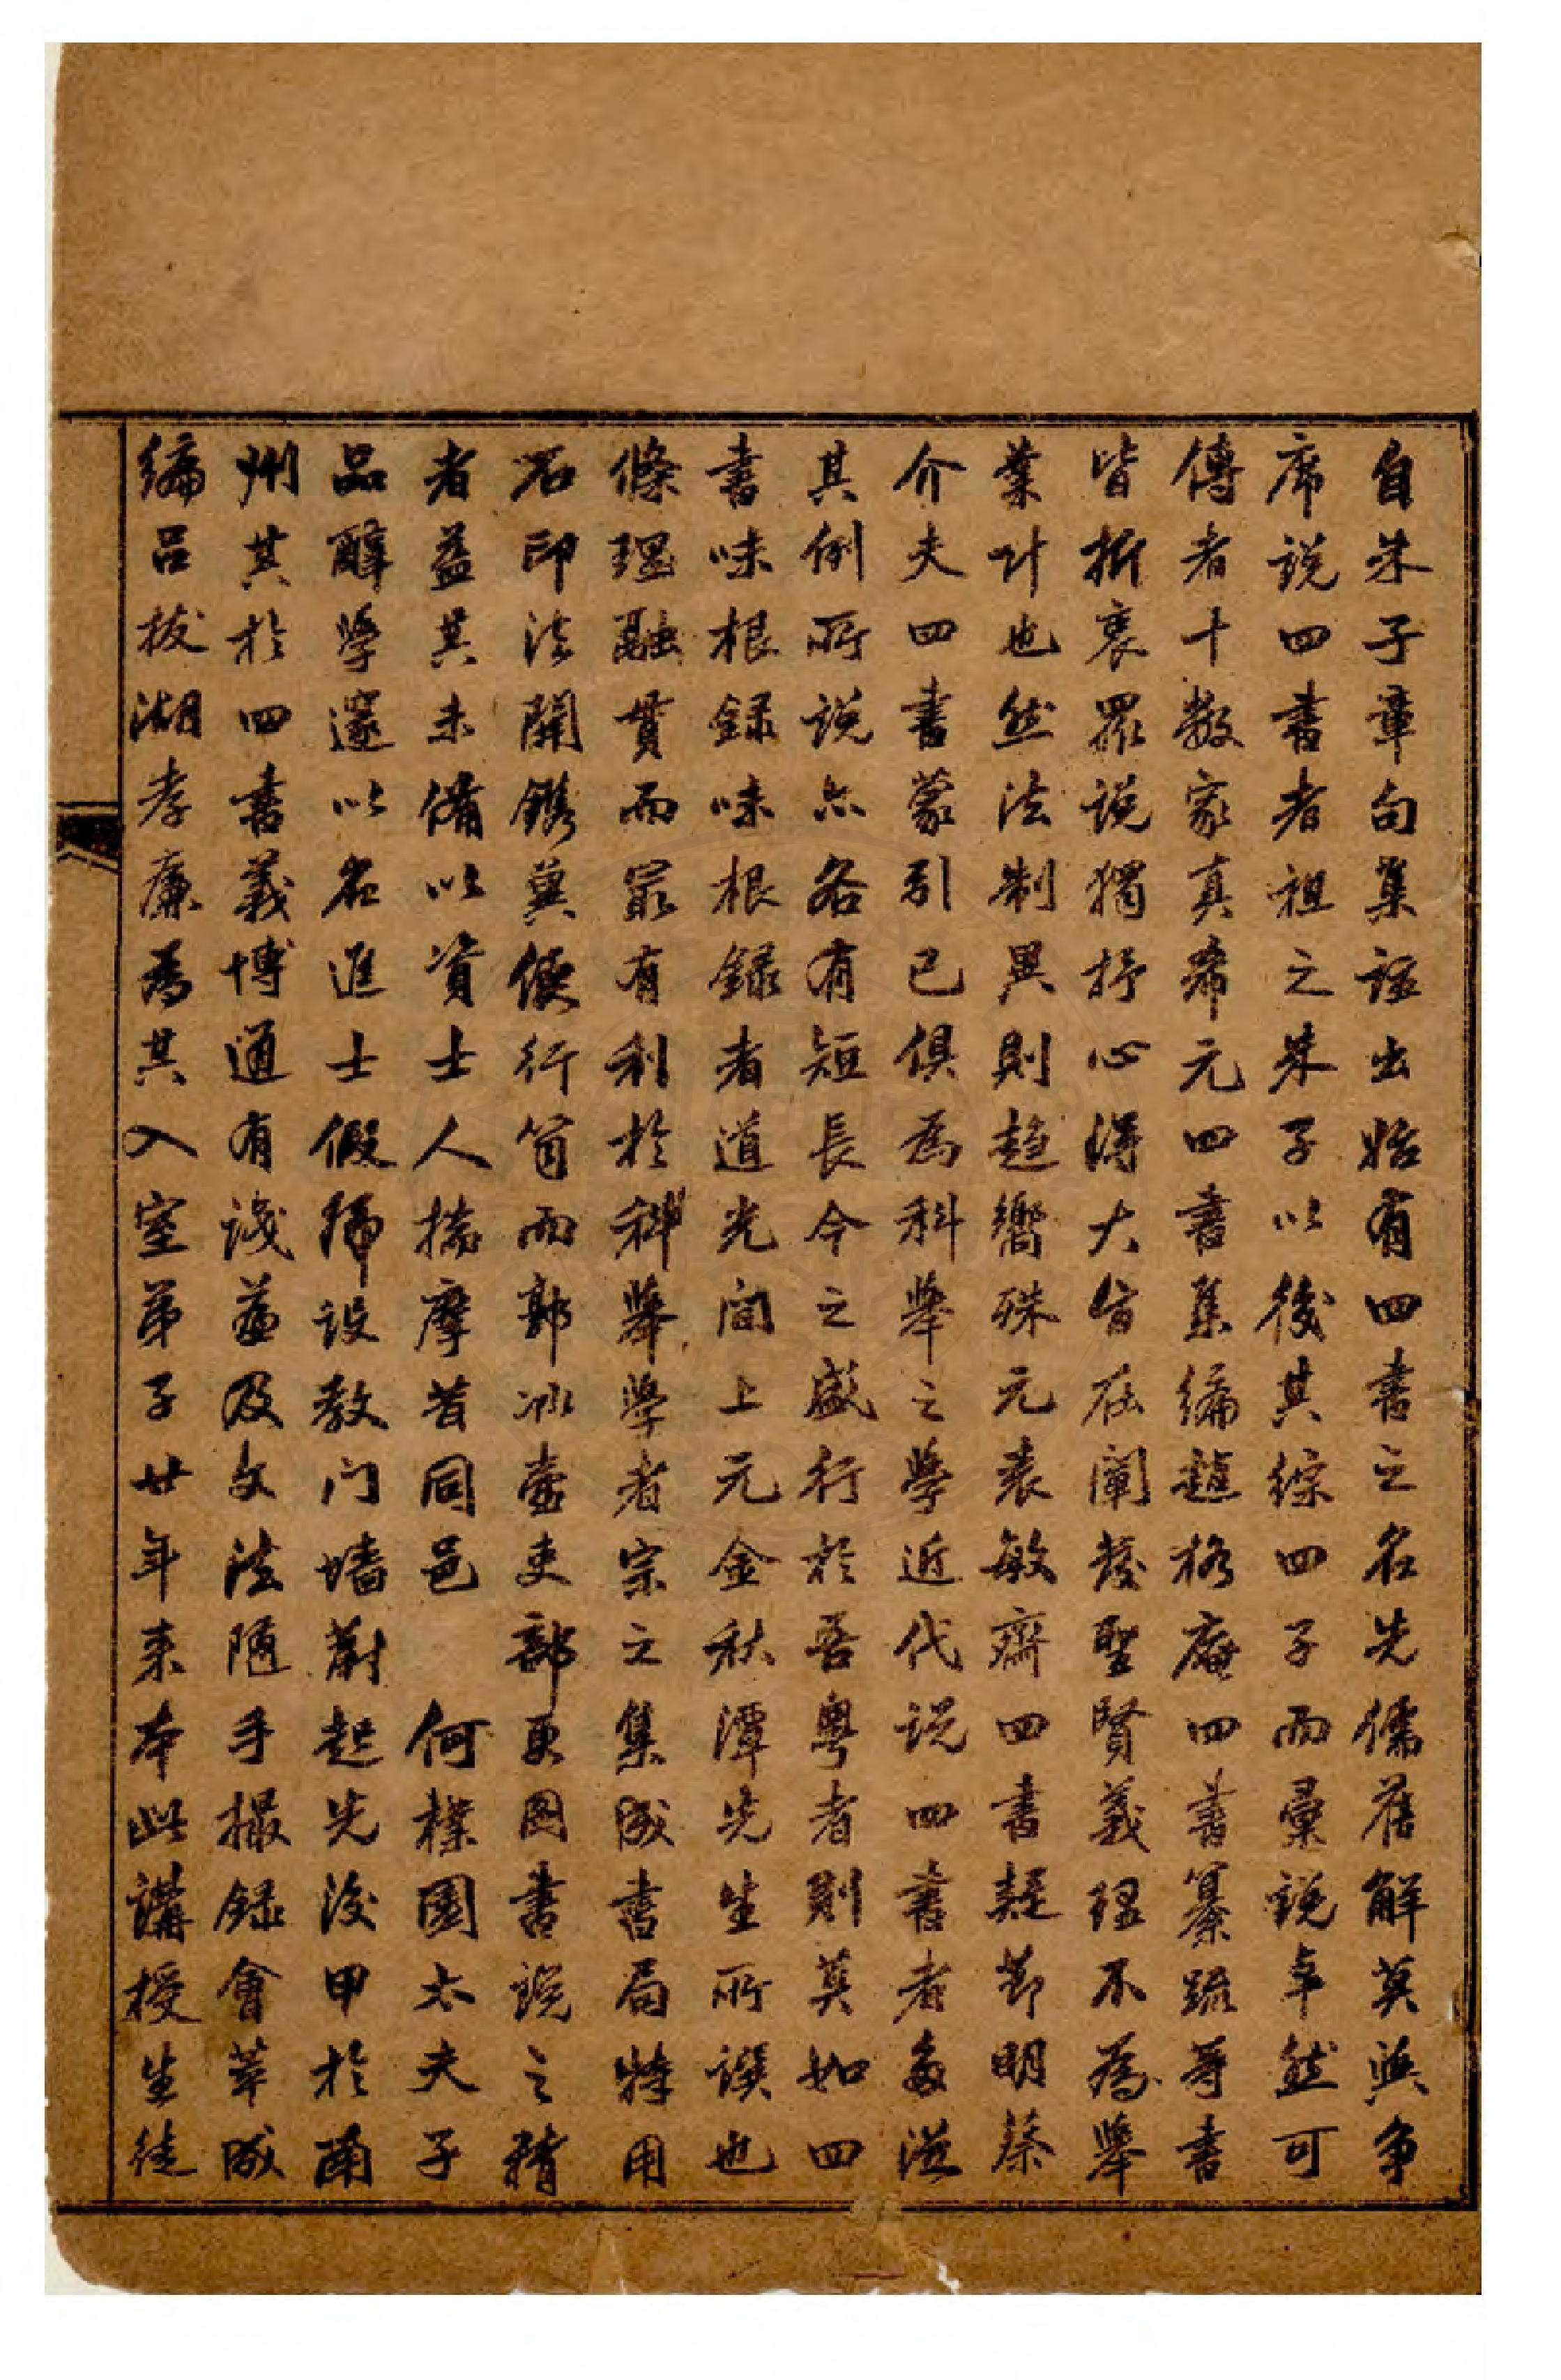 自朱子章句集註出始有四書之名先儒舊解莫與爭
席說四書者祖之朱子以後其綜四子而彙說卓然可
傳者十數家真希元四書集編趙格庵四書纂疏等書
皆折衷眾說獨抒心得大旨在闡發聖賢義理不為舉
業計也然法制異則趨嚮殊元袁敏齋四書疑節明蔡
介夫四書蒙引已俱為科舉之學近代說四書者多從
其例所說亦各有短長今之盛行於吾粵者則莫如四
書味根錄味根錄者道光間上元金秋潭先生所譔也
條理融貫而最有利於科舉學者宗之集成書局特用
石印法開鐫冀便行篋而郭冰壺吏部更圖書說之精
者益其未備以資士人揣摩昔同邑 何樸園太夫子
品醇學邃以名進士假歸設教門墻蔚起先後甲於南
州其於四書義博通有識並及文法隨手撮錄會萃成
編呂拔湖孝廉為其入室弟子廿年來本此講授生徒